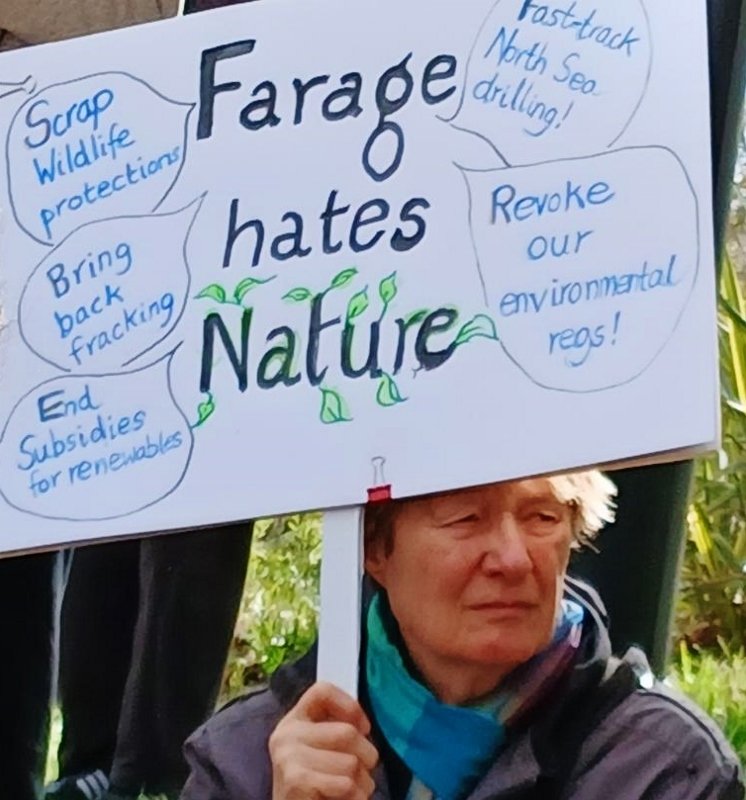 Farage
hates
Nature
Scrap
Wildlife
protections
Bring
back
fracking
End
Subsidies
for renewables
Fast-track
North Sea
drilling!
Revoke
our
environmental
regs!